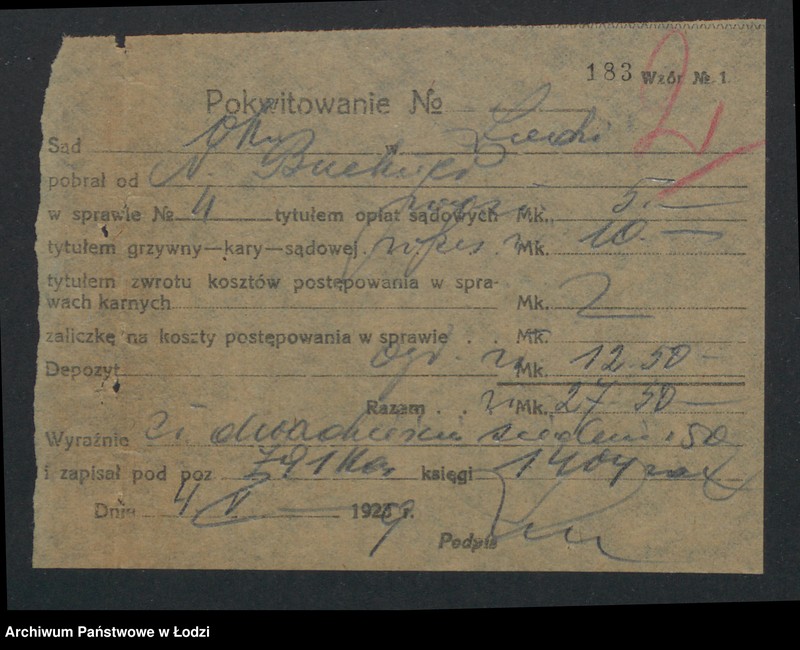 183 Wzór № 1.
2
Pokwitowanie №
Sąd Okr. w Łodzi
pobrał od N.
w sprawie № 4 tytułem opłat sądowych Mk. 5.—
tytułem grzywny—kary—sądowej Mk. 10.—
tytułem zwrotu kosztów postępowania w spra-
wach karnych Mk.
zaliczkę na koszty postępowania w sprawie . . Mk.
Depozyt Mk. 12.50 —
Razem . . Mk. 27 50 —
Wyraźnie dwadzieścia siedem 50
i zapisał pod poz księgi
Dnia 4 V 1929 r.
Podpis
Archiwum Państwowe w Łodzi